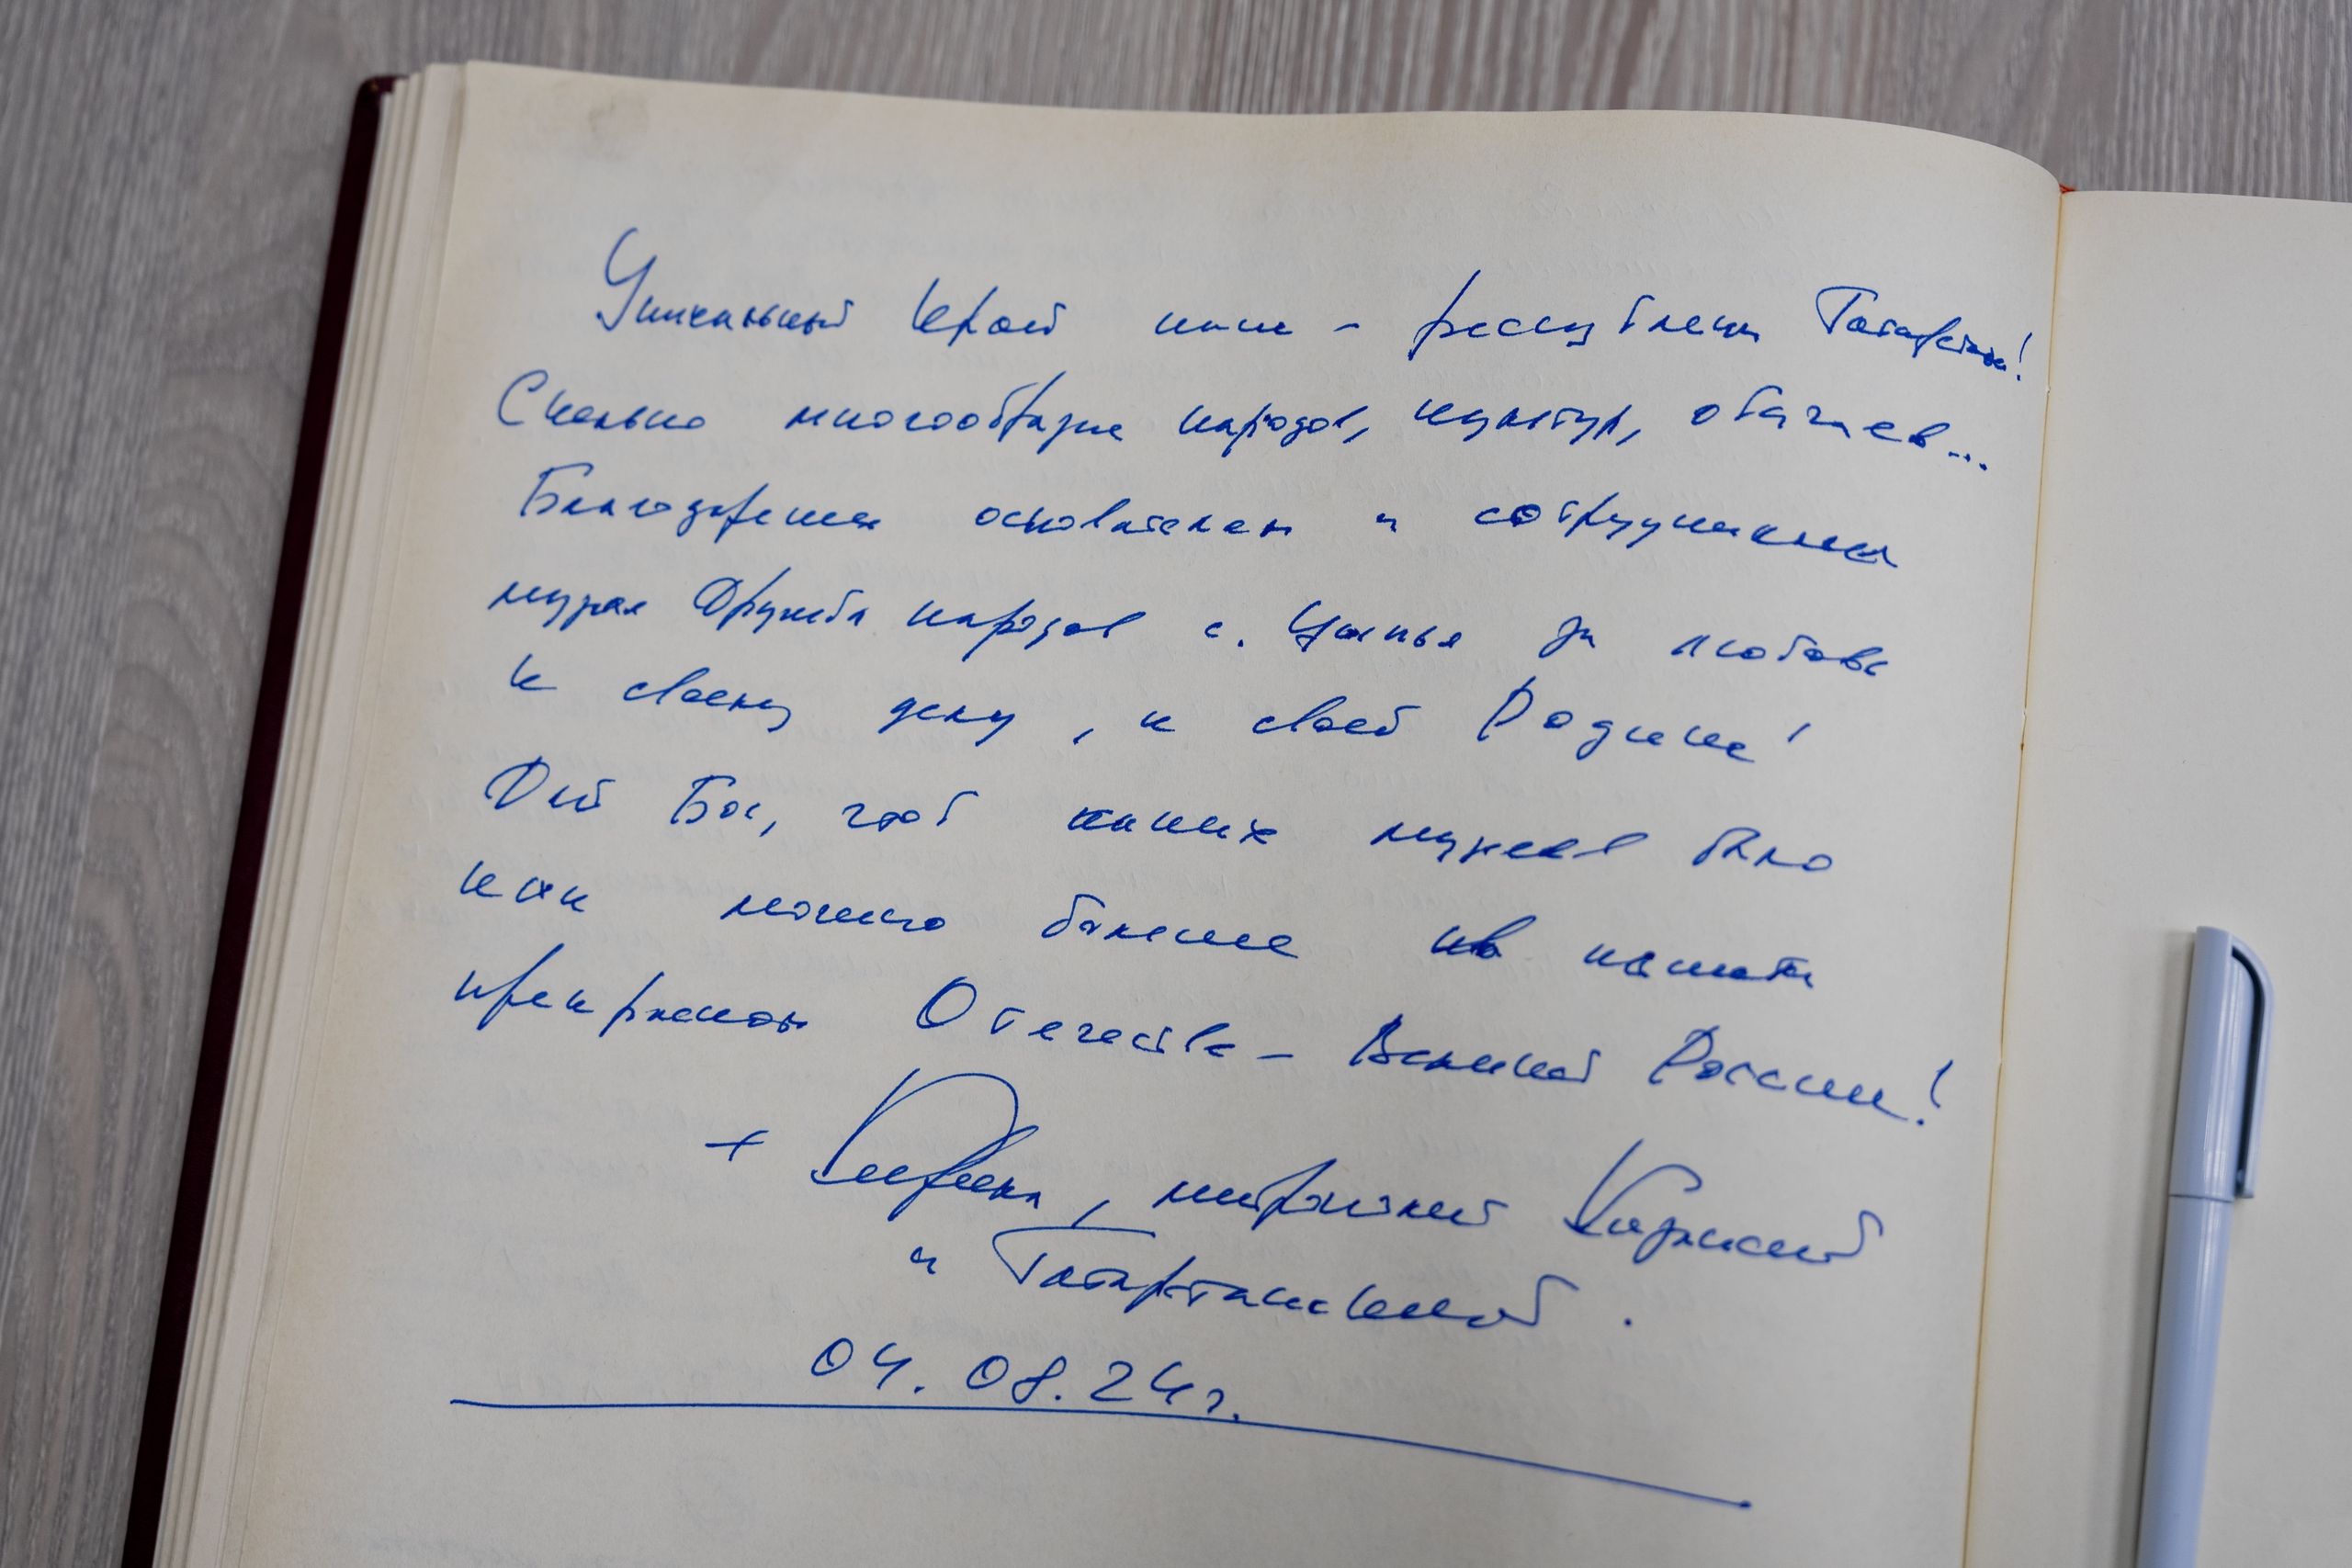 Уникальный край наш – республика Татарстан!
Сколько многообразия народов, культур, обычаев...
Благодарение основателям и сотрудникам
музея Дружбы народов с. Цыпья за любовь
к своему делу, к своей Родине!
Дай Бог, чтоб таких музеев было
как можно больше на нашем
прекрасном Отечестве – Великой России!
+ Кирилл, митрополит Казанский
и Татарстанский.
04.08.24г.